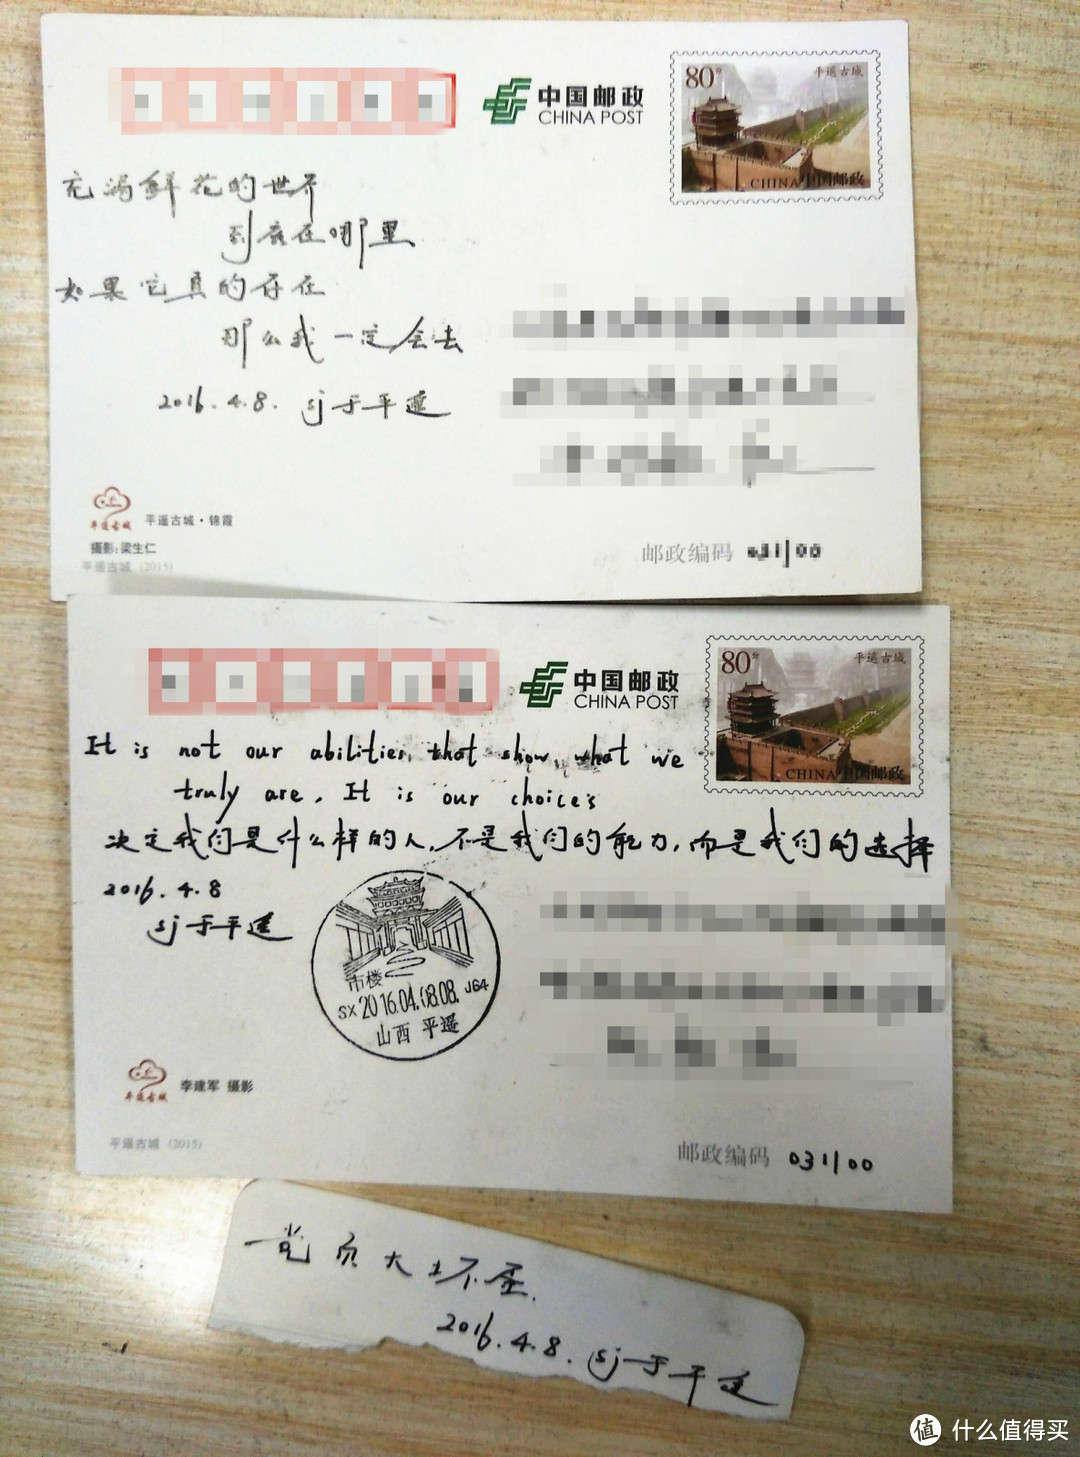 中国邮政
CHINA POST
80分
平遥古城
CHINA中国邮政
充满鲜花的世界
到底在哪里
如果它真的存在
那么我一定会去
2016.4.8. sj于平遥
平遥古城
平遥古城·锦霞
摄影:梁生仁
平遥古城 (2015)
邮政编码 031100
中国邮政
CHINA POST
80分
平遥古城
CHINA中国邮政
It is not our abilities that show what we
truly are, It is our choices
决定我们是什么样的人,不是我们的能力,而是我们的选择
2016.4.8
sj于平遥
市楼
SX 2016.04.08.08. J64
山西 平遥
平遥古城
李建军 摄影
平遥古城 (2015)
邮政编码 031100
大坏蛋.
2016.4.8. sj于平遥
值 什么值得买